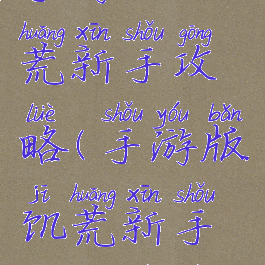 huāng xīn shǒu gōng
荒新手攻
lüè shǒu yóu bǎn
略(手游版
jī huāng xīn shǒu
饥荒新手